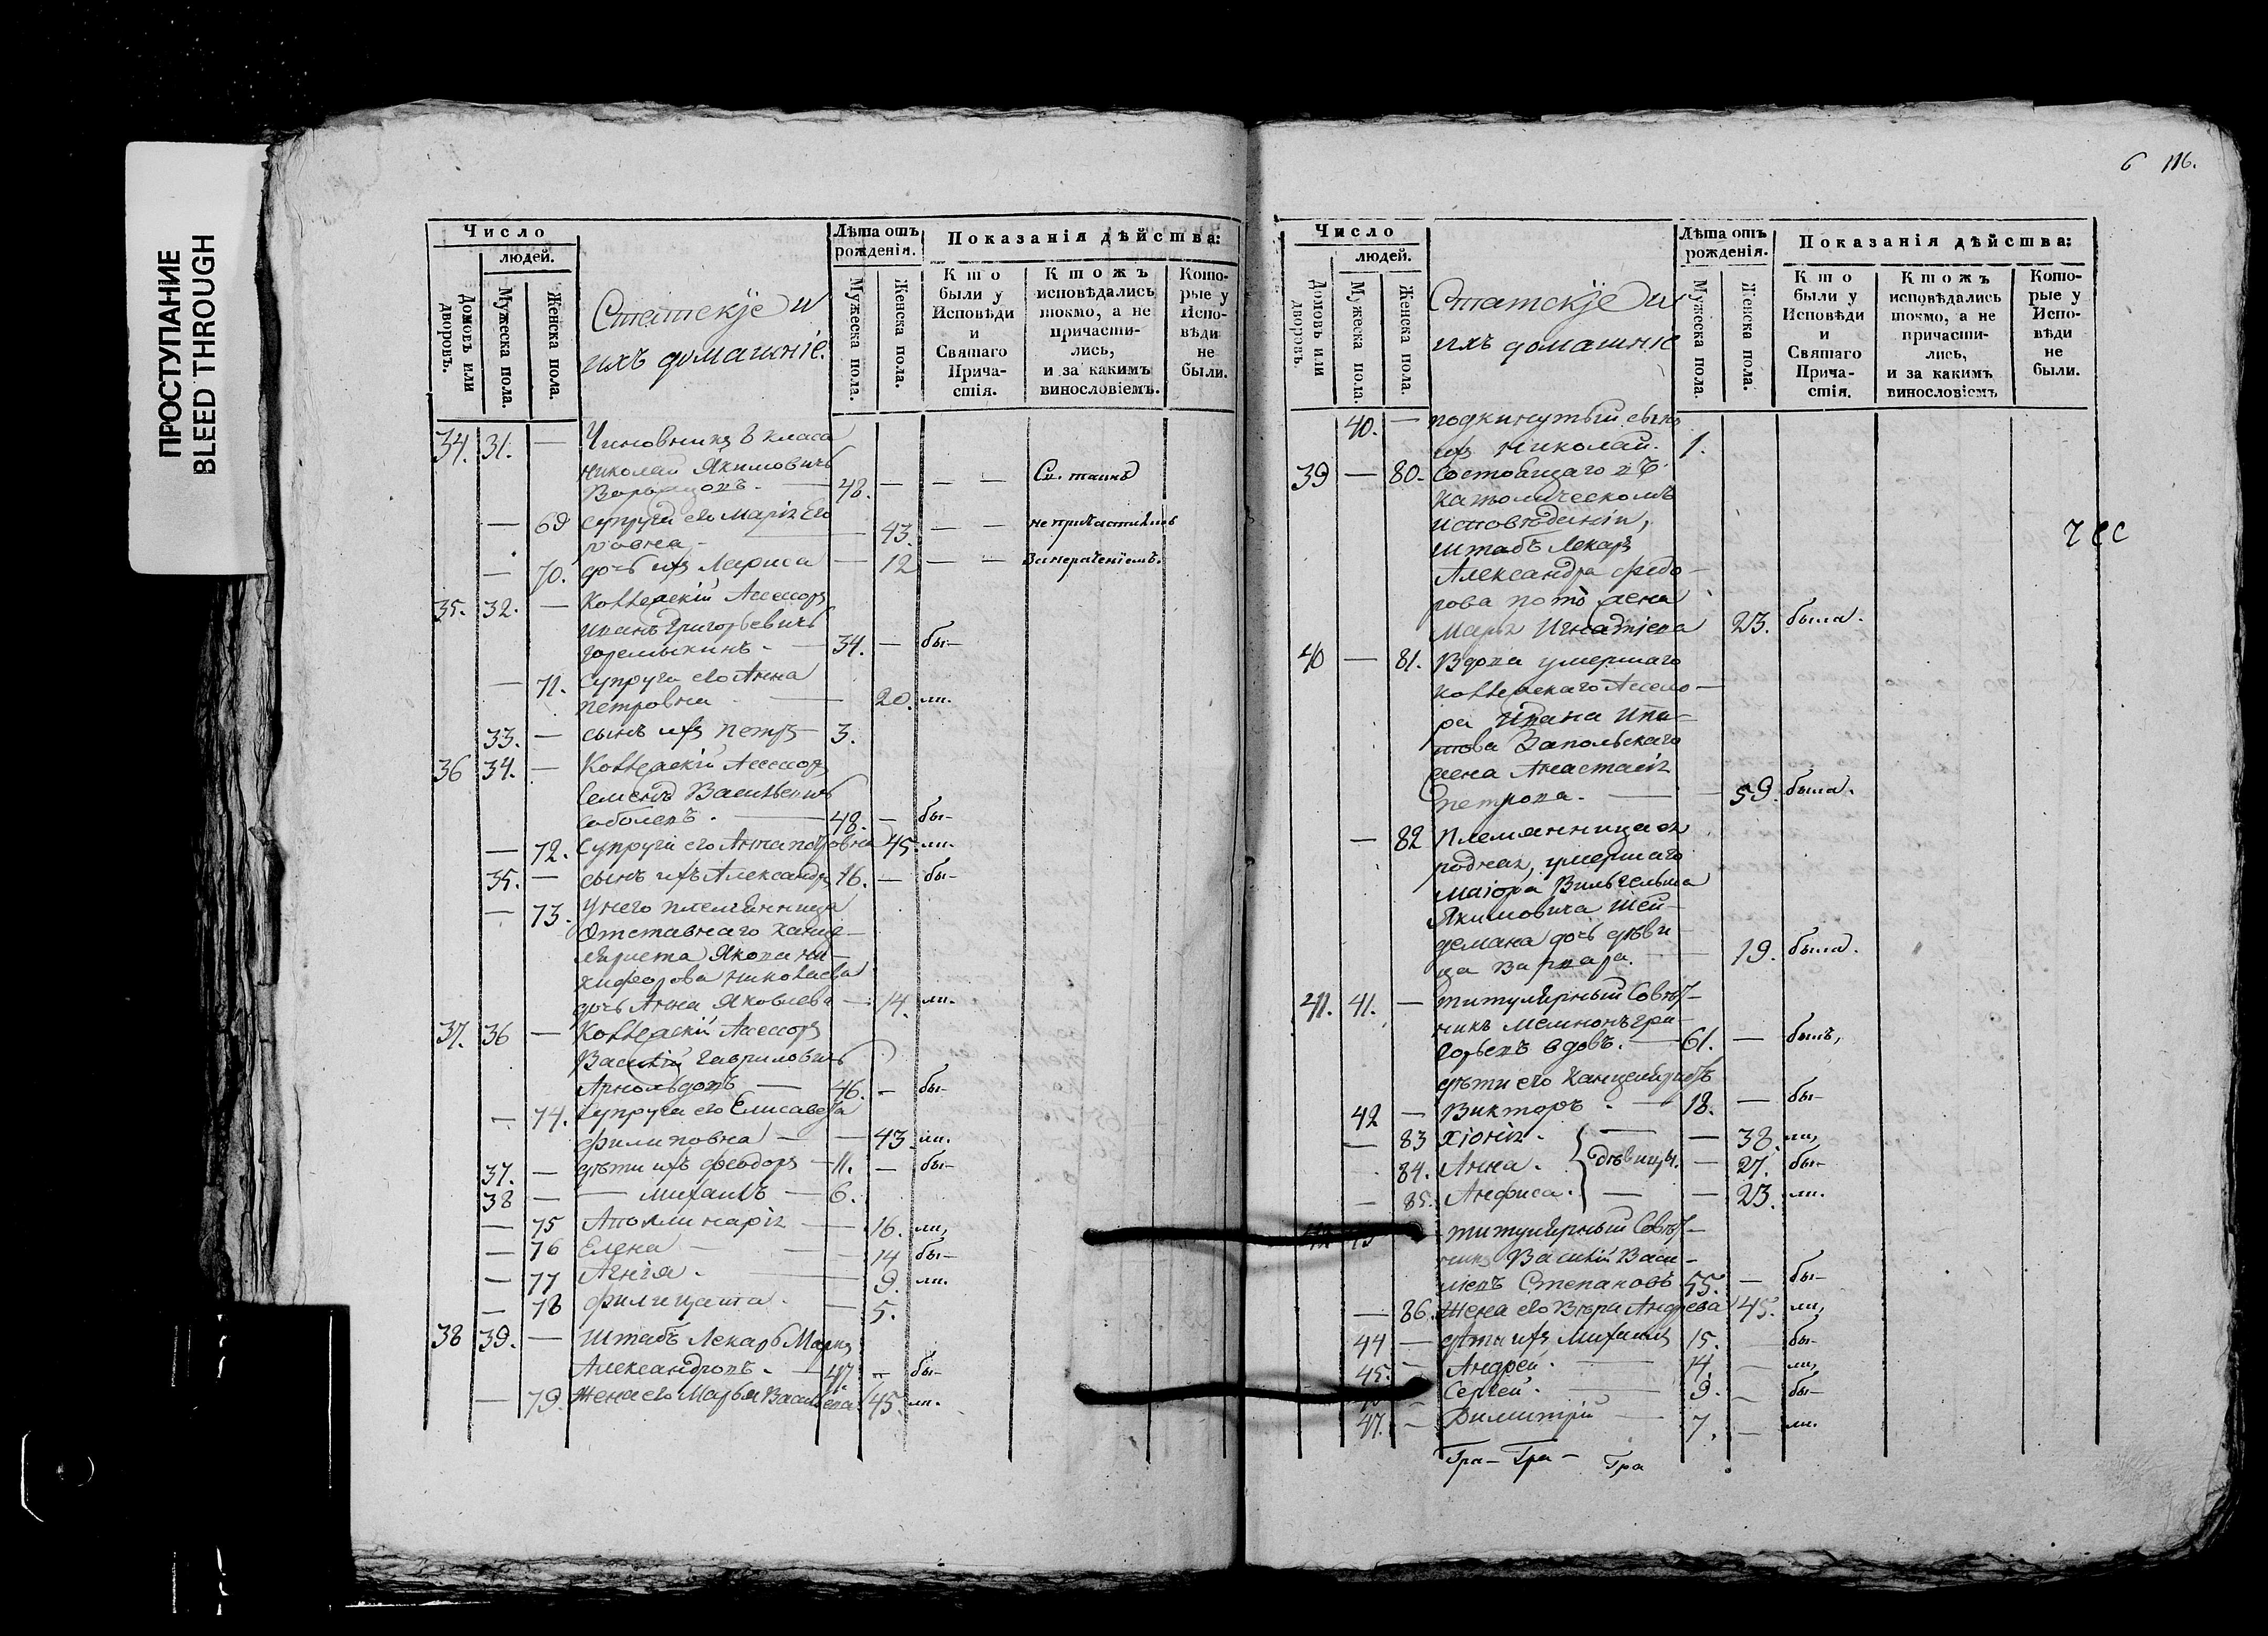 ПРОСТУПАНИЕ
BLEED THROUGH
Число
людей.
Домовъ или дворовъ.
Мужеска пола.
Женска пола.
Статскіе и
ихъ домашніе.
Лѣта отъ рожденія.
Мужеска пола.
Женска пола.
Показанія дѣйства:
Кто были у Исповѣди и Святаго Причастія.
Ктожъ исповѣдались токмо, а не причастились, и за какимъ винословіемъ.
Которые у Исповѣди не были.
34. 31. — Чиновникъ 8 класа
Николай Якимовичъ
48. — — — Св. таинъ
— 69 супруга его Марія Его
ровна — 43. — — не причастились
— 70. дочь ихъ Лариса — 12 — — Занераченіемъ.
35. 32. — Коллежскій Асессоръ
Иванъ Григорьевичъ
Горемыкинъ. — 34. — бы-
— 71. Супруга его Анна
Петровна — 20. ли.
33. — сынъ ихъ Петръ — 3.
36 34. — Коллежскій Асессоръ
Семенъ Васильевичъ
Соболевъ. — 48. — бы-
— 72. Супруга его Анна Петровна 45 ли.
35. — сынъ ихъ Александръ 16. — бы-
— 73. У него племянница
Отставнаго канце-
ляриста Якова Ни-
кифорова Николаева
дочь Анна Яковлева — 14. ли.
37. 36 — Коллежскій Асессоръ
Василій Гавриловичъ
Арнольдовъ — 46. — бы-
— 74. Супруга его Елисавета
Филиповна — — 43. ли.
37. — дѣти ихъ Феодоръ — 11. — бы-
38 — — Михаилъ — 6.
— 75 Аполлинарія — 16. ли,
— 76 Елена — — 14 бы-
— 77 Агнія. — 9. ли.
— 78 Филицата. — 5.
38 39. — Штабъ Лекарь Маркъ
Александровъ. — 47. — бы-
— 79. Жена его Марья Васильева 45. ли.
6 116.
Число
людей.
Домовъ или дворовъ.
Мужеска пола.
Женска пола.
Статскіе и
ихъ домашніе
Лѣта отъ рожденія.
Мужеска пола.
Женска пола.
Показанія дѣйства:
Кто были у Исповѣди и Святаго Причастія.
Ктожъ исповѣдались токмо, а не причастились, и за какимъ винословіемъ
Которые у Исповѣди не были.
40. — подкинутый сынъ
ихъ Николай. 1.
39 — 80. Состоящаго въ
католическомъ
исповѣданіи,
Штабъ Лекаря
Александра Федо-
рова
Марья Игнатіева 23. была.
40 — 81. Вдова умершаго
Коллежскаго Асессо-
ра Ивана Ипа-
това Запольскаго
жена Анастасія
Петрова. — 59. была.
— 82 Племянница ея
родная, умершаго
Маіора Вильгельма
Якимовича Шей-
демана дочь дѣви
ца Варвара. — 19. была.
41. 41. — Титулярный Совѣт-
никъ Мемнонъ Гри-
горьевъ вдовъ. — 61. — былъ,
дѣти его Канцеляристъ
42 — Викторъ. — 18. — бы-
— 83 Хіонія. — — 38. ли,
84. Анна. дѣвицы. — 27. бы-
— 85. Анфиса. — — 23. ли.
Титулярный Совѣт-
никъ Василій Васи-
льевъ Степановъ 55. — бы-
— 86. Жена его Вѣра Андреева 45. ли,
44 — дѣти ихъ Михаилъ 15. бы-
45. — Андрей. — 14. — ли,
Сергей. — 9. — бы-
47. — Димитрій — 7. — ли.
Гра- Гра- Гра